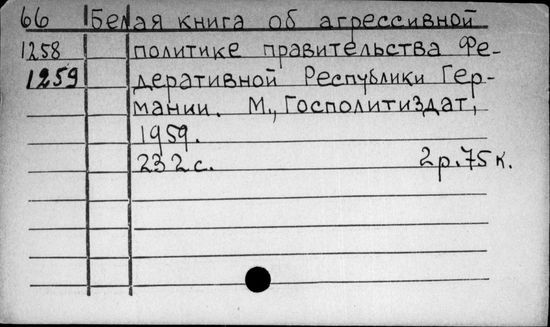 66 Белая книга об агрессивной
1258 политике правительства Фе-
1259 деративной Республики Гер-
мании. М., Госполитиздат,
1959.
232 с. 2р.75к.